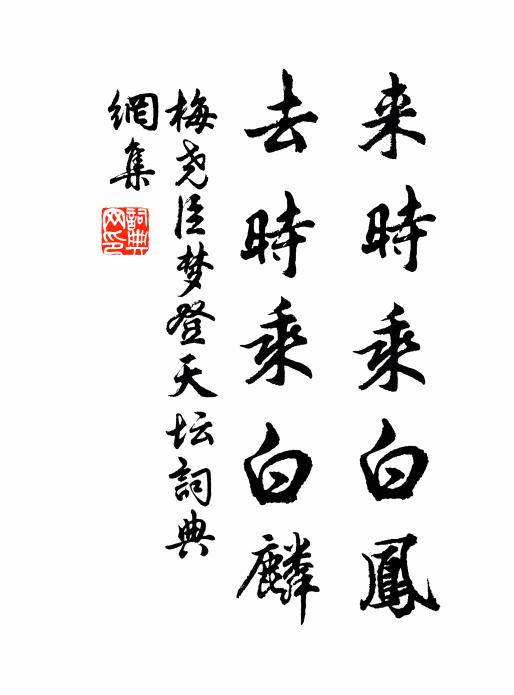 来時乘白鳳
去時乘白麟
梅尧臣梦登天坛詞典
網集
詞典
网印